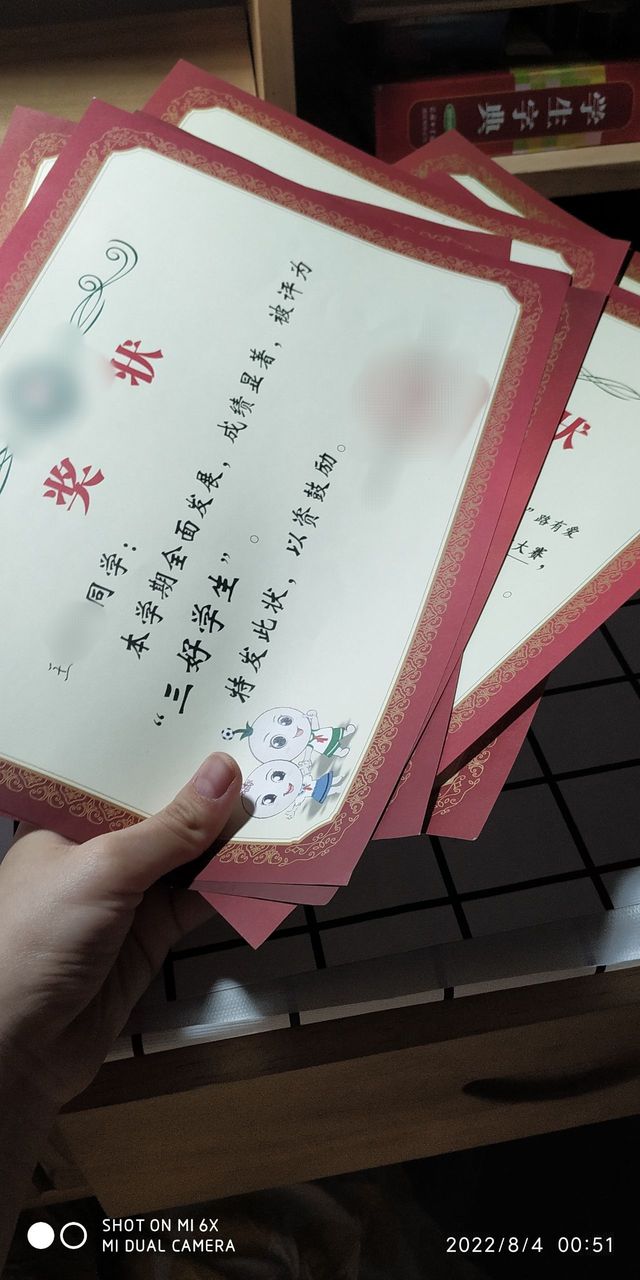 学生字典
奖 状
王
同学：
本学期全面发展，成绩显著，被评为
“三好学生”。
特发此状，以资鼓励。
状
”路有爱
大赛，
。
SHOT ON MI 6X
MI DUAL CAMERA
2022/8/4 00:51